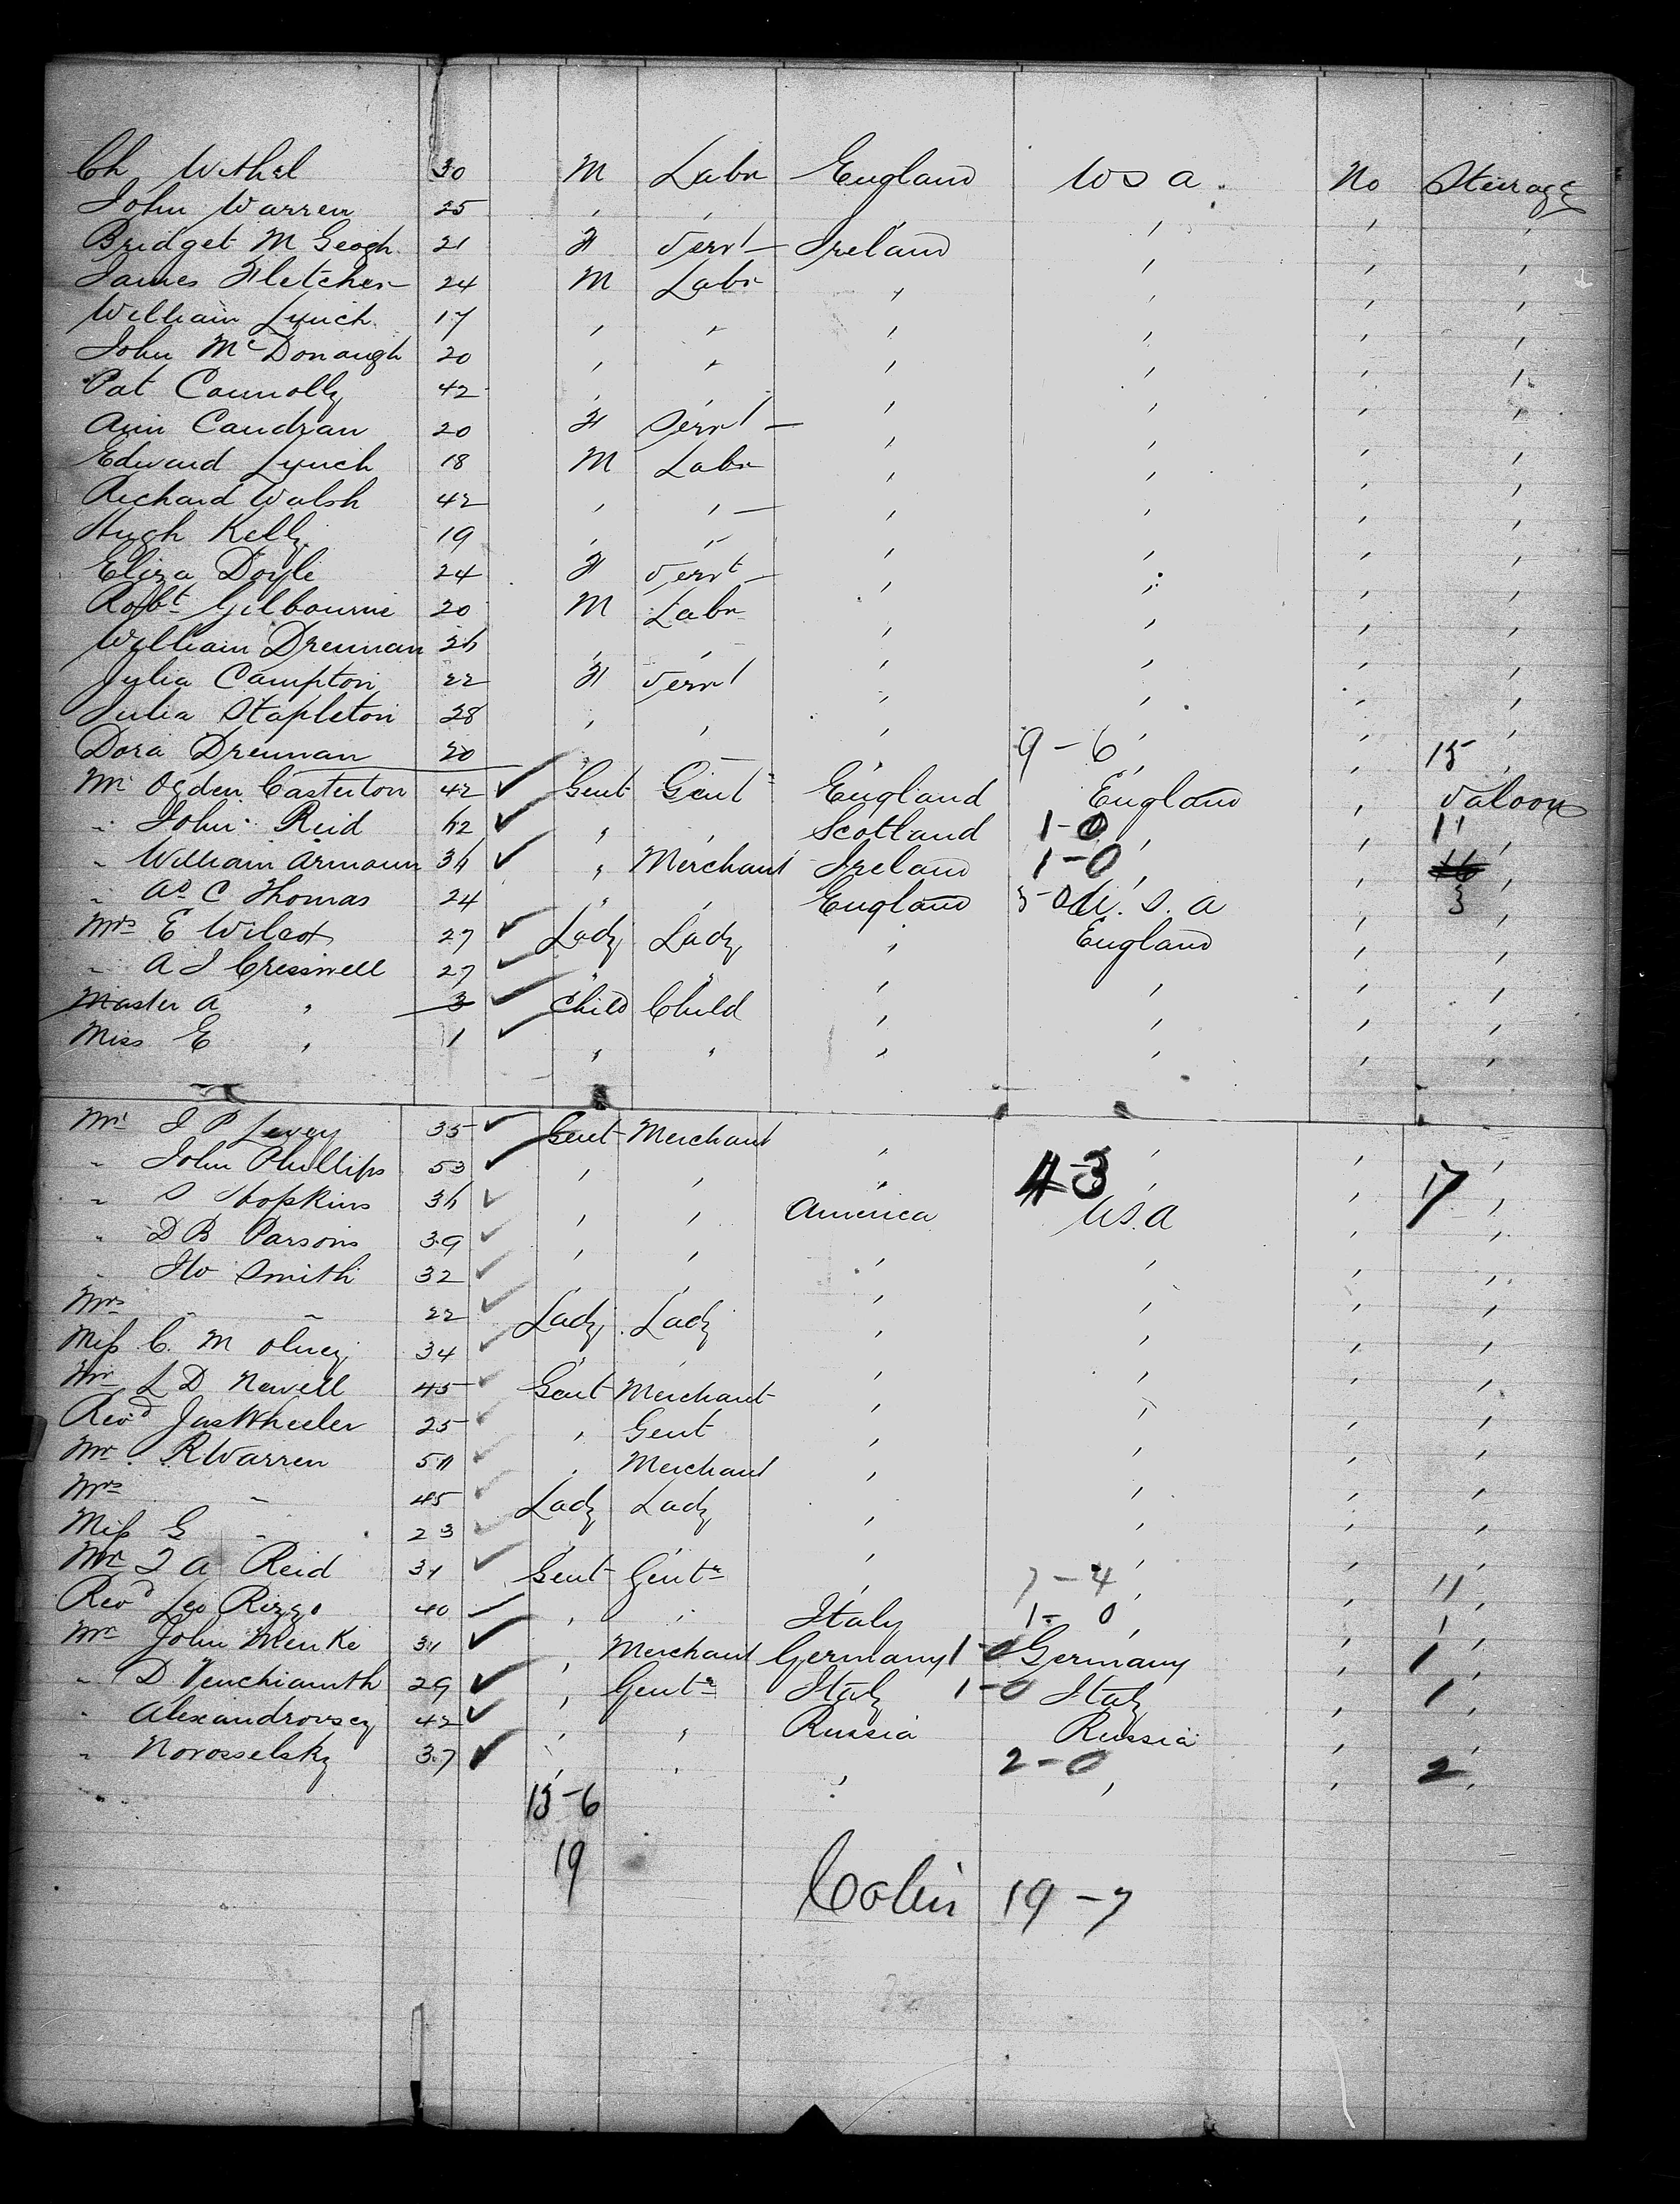 Ch Withel 30 M Labr England U S A. No Steerage
John Warren 25 " " " " " "
Bridget McGeogh 21 F Servt Ireland " " "
James Fletcher 24 M Labr " " " "
William Lynch 17 " " " " " "
John McDonaugh 20 " " " " " "
Pat Connolly 42 " " " " " "
Ann Caudran 20 F Servt " " " "
Edward Lynch 18 M Labr " " " "
Richard Walsh 42 " " " " " "
Hugh Kelly 19 " " " " " "
Eliza Doyle 24 F Servt " " " "
Robt Gilbourne 20 M Labr " " " "
William Drennan 26 " " " " " "
Julia Campton 22 F Servt " " " "
Julia Stapleton 28 " " " " " "
Dora Drennan 20 " " " 9-6 " " 15 "
Mr Ogden Casterton 42 ✓ Gent Gentn England England " Saloon
" John Reid 62 ✓ " " Scotland 1-0 " " 1 "
" William Armoun 36 ✓ " Merchant Ireland 1-0 " " 16 "
" As C Thomas 24 " " England 3-0 U. S. A " 3
Mrs E Wilcox 27 ✓ Lady Lady " England " "
" A J Cresswell 27 ✓ " " " " " "
Master A " 3 ✓ Child Child " " " "
Miss E " 1 ✓ " " " " " "
Mr J P Levey 35 ✓ Gent Merchant " " " "
" John Phillips 53 ✓ " " " 4-3 " " 17 "
" S Hopkins 36 ✓ " " America U.S.A " "
" D B Parsons 39 ✓ " " " " " "
" Smith 32 ✓ " " " " " "
Mrs " " 22 ✓ Lady Lady " " " "
Miss C. M Olney 34 ✓ " " " " " "
Mr L D Newell 45 ✓ Gent Merchant " " " "
Revd Jas Wheeler 25 ✓ " Gent " " " "
Mr R Warren 50 ✓ " Merchant " " " "
Mrs " 45 ✓ Lady Lady " " " "
Miss G " 23 ✓ " " " " " "
Mr A Reid 31 ✓ Gent Gentn " 7-4 " " 11 "
Revd Leo Rizzo 40 ✓ " " Italy 1-0 " " 1 "
Mr John Menke 31 ✓ " Merchant Germany 1-0 Germany " 1 "
" D Venchiamth 29 ✓ " Gentn Italy 1-0 Italy " 1 "
" Alexandrovsey 42 ✓ " " Russia Russia " "
" Norosselsky 37 ✓ " " " 2-0 " " 2 "
13-6
19
Colin 19-7